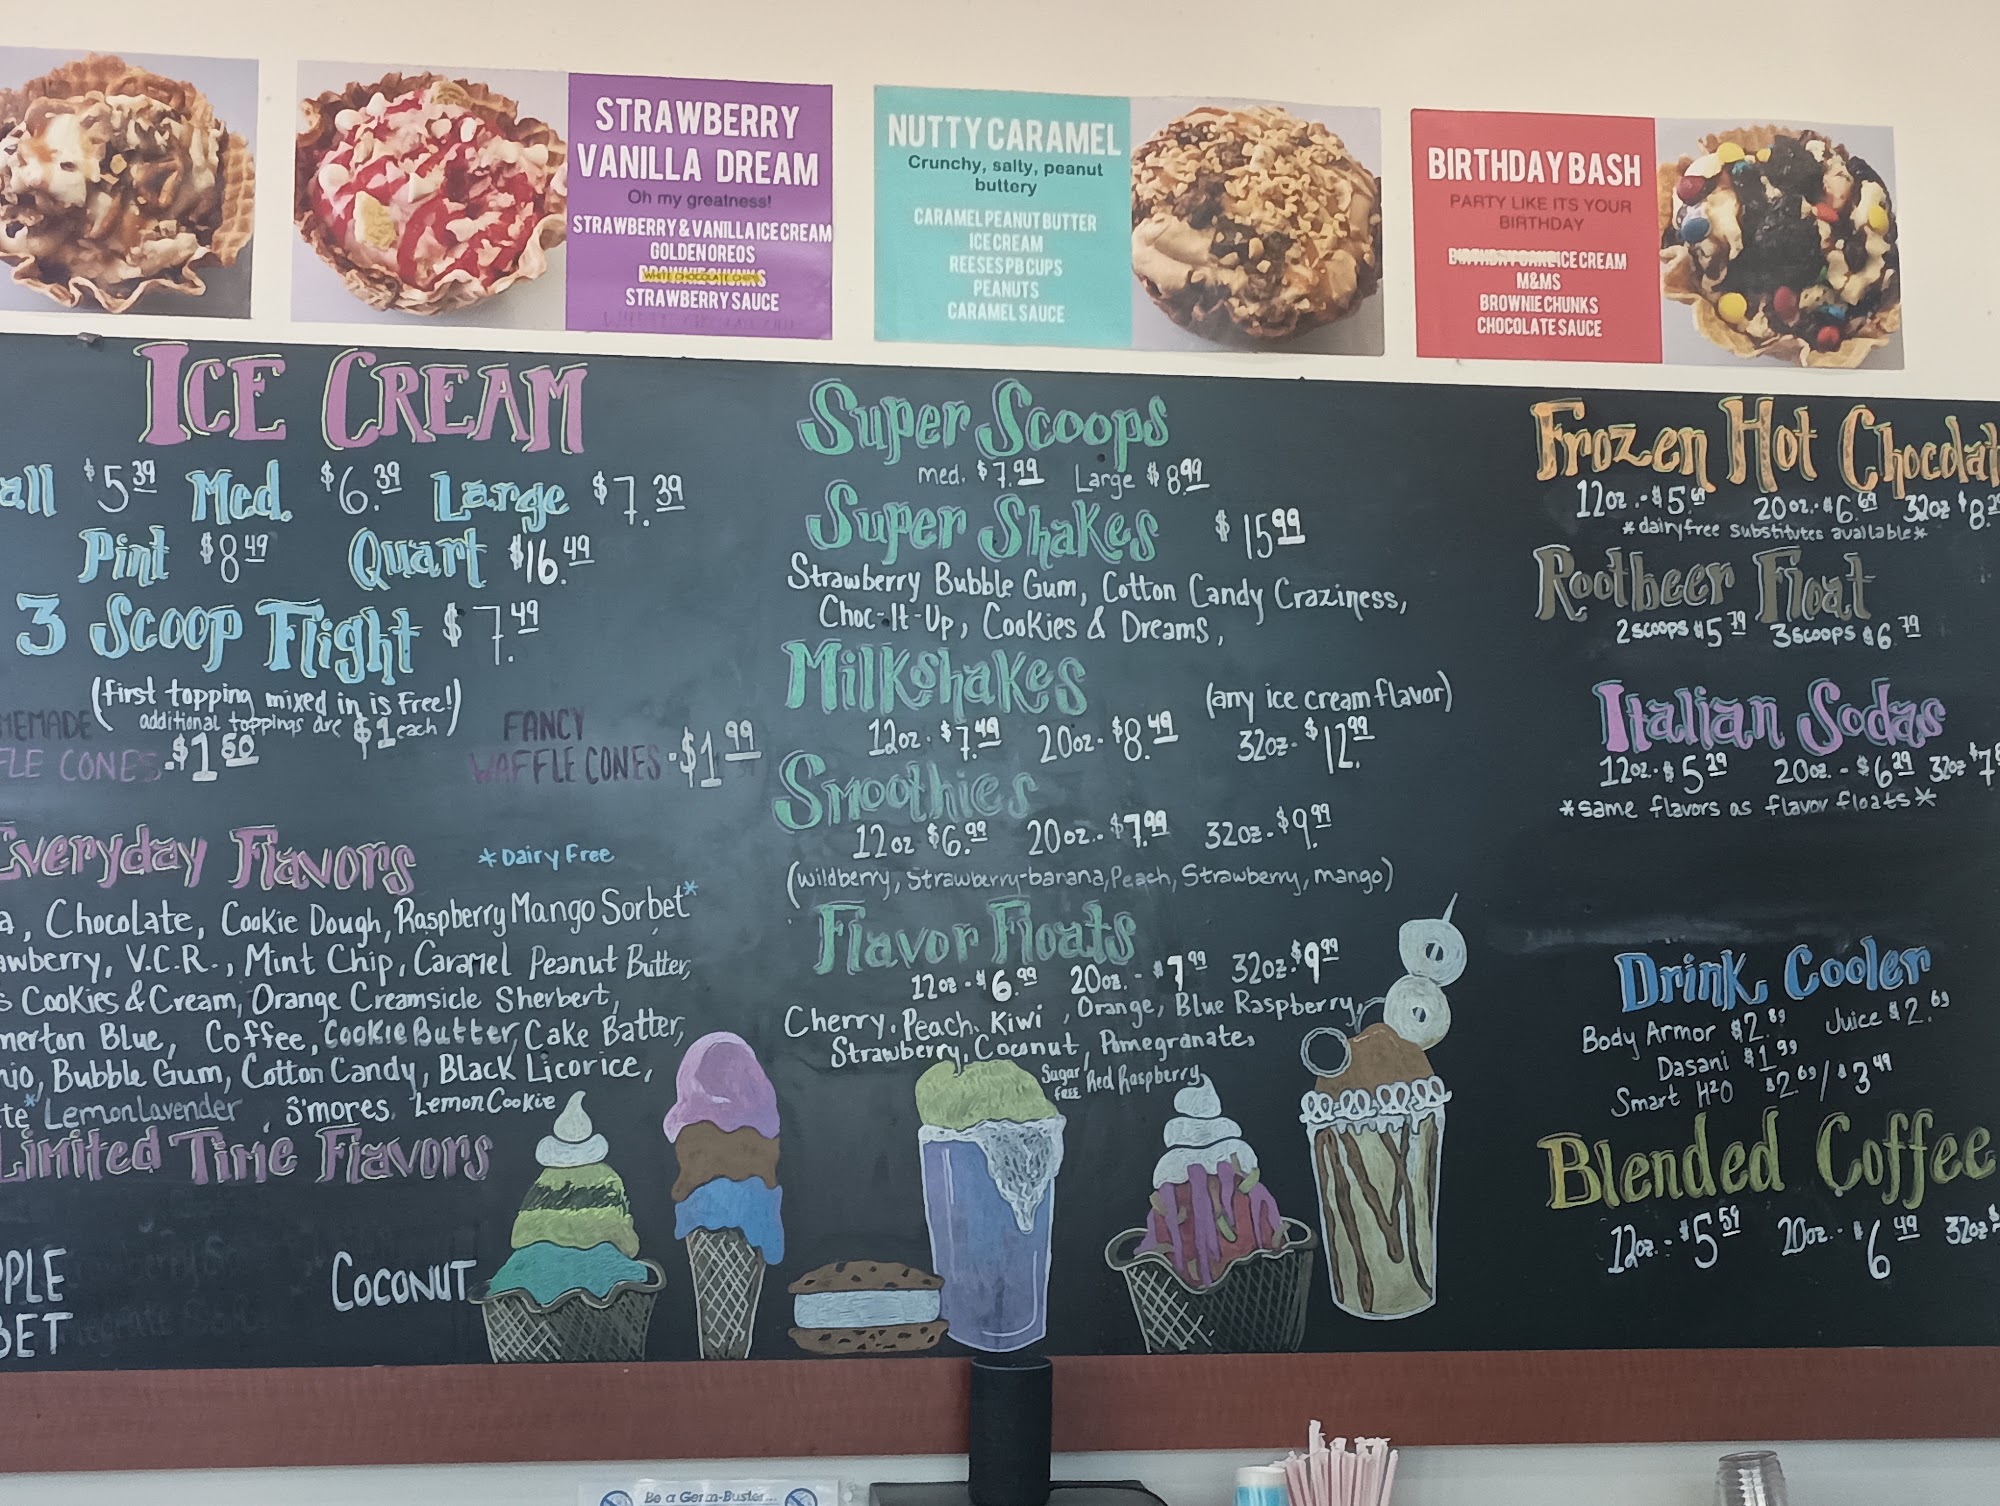 STRAWBERRY
VANILLA DREAM
Oh my greatness!
STRAWBERRY & VANILLA ICE CREAM
GOLDEN OREOS
WHITE CHOCOLATE CHIPS
STRAWBERRY SAUCE
NUTTY CARAMEL
Crunchy, salty, peanut
buttery
CARAMEL PEANUT BUTTER
ICE CREAM
REESES PB CUPS
PEANUTS
CARAMEL SAUCE
BIRTHDAY BASH
PARTY LIKE ITS YOUR
BIRTHDAY
BIRTHDAY CAKE ICE CREAM
M&MS
BROWNIE CHUNKS
CHOCOLATE SAUCE
ICE CREAM
all $5.39 Med. $6.39 Large $7.39
Pint $8.49 Quart $16.49
3 Scoop Flight $7.49
(first topping mixed in is Free!)
additional toppings are $1 each
EMADE
FLE CONES - $1.50
FANCY
WAFFLE CONES - $1.99
Everyday Flavors *Dairy Free
a, Chocolate, Cookie Dough, Raspberry Mango Sorbet*
awberry, V.C.R., Mint Chip, Caramel Peanut Butter,
s Cookies & Cream, Orange Creamsicle Sherbert,
merton Blue, Coffee, Cookie Butter, Cake Batter,
Bubble Gum, Cotton Candy, Black Licorice,
te* Lemon Lavender, S'mores, Lemon Cookie
Limited Time Flavors
PPLE
BET
COCONUT
Super Scoops
med. $7.99 Large $8.99
Super Shakes $15.99
Strawberry Bubble Gum, Cotton Candy Craziness,
Choc-It-Up, Cookies & Dreams,
Milkshakes (any ice cream flavor)
12oz. $7.49 20oz. $8.49 32oz. $12.99
Smoothies
12oz $6.99 20oz. $7.99 32oz. $9.99
(wildberry, Strawberry-banana, Peach, Strawberry, mango)
Flavor Floats
12oz - $6.99 20oz. - $7.99 32oz. $9.99
Cherry, Peach, Kiwi, Orange, Blue Raspberry,
Strawberry, Coconut, Pomegranate,
Sugar Free Red Raspberry
Frozen Hot Chocolat
12oz. - $5.69 20oz. - $6.69 32oz $8.
*dairyfree substitutes available*
Rootbeer Float
2 scoops $5.79 3 scoops $6.79
Italian Sodas
12oz. $5.29 20oz. - $6.29 32oz $7.
*same flavors as flavor floats*
Drink Cooler
Body Armor $2.89 Juice $2.69
Dasani $1.99
Smart H2O $2.69/$3.49
Blended Coffee
12oz. - $5.59 20oz. - $6.49 32oz $
Be a Germ-Buster...